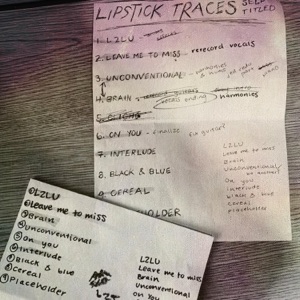 LIPSTICK TRACES SELF TITLED
1. L2LU
2. LEAVE ME TO MISS - rerecord vocals
3. UNCONVENTIONAL - harmonies
4. BRAIN harmonies
5.
6. ON YOU - finalize guitar?
7. INTERLUDE
8. BLACK & BLUE
9. CEREAL
HOLDER
L2LU
Leave me to miss
Brain
Unconventional
On you
Interlude
black & blue
cereal
placeholder
① L2LU
② Leave me to miss
③ Brain
④ Unconventional
⑤ On you
⑥ Interlude
⑦ Black & blue
⑧ Cereal
⑨ Placeholder
L2LU
Leave me to miss
Brain
Unconventional
On you